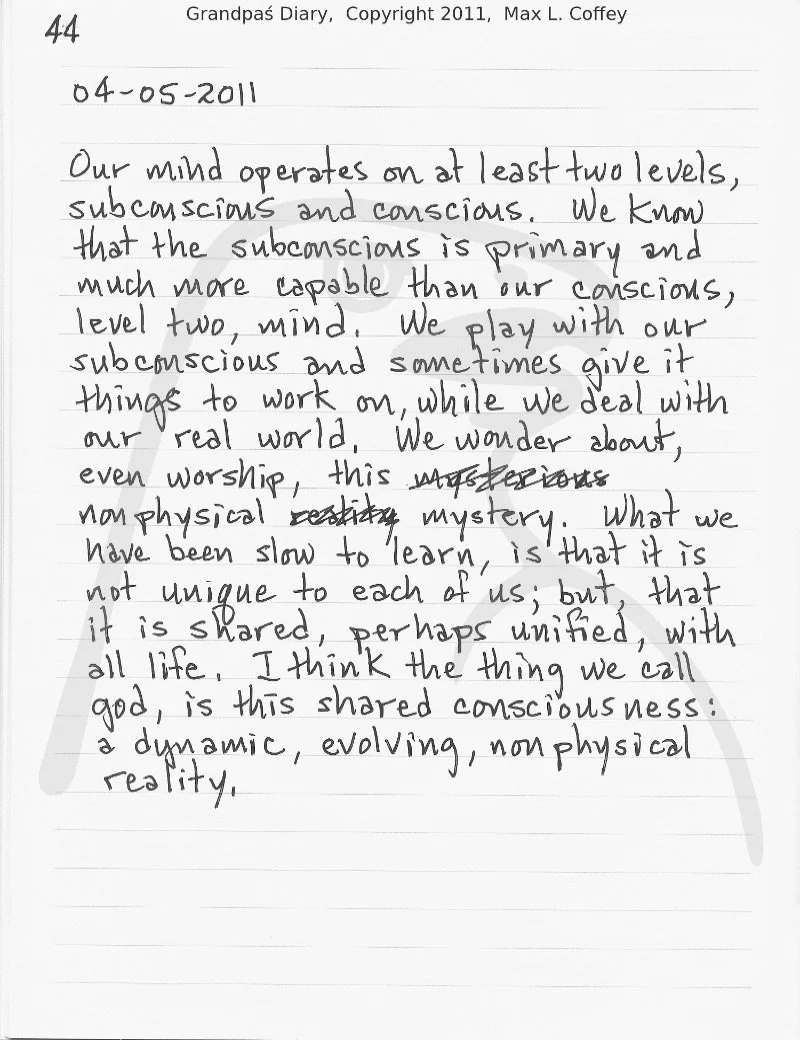 Grandpaś Diary, Copyright 2011, Max L. Coffey
44
04-05-2011
Our mind operates on at least two levels,
subconscious and conscious. We know
that the subconscious is primary and
much more capable than our conscious,
level two, mind. We play with our
subconscious and sometimes give it
things to work on, while we deal with
our real world. We wonder about,
even worship, this mysterious
nonphysical reality mystery. What we
have been slow to learn, is that it is
not unique to each of us; but, that
it is shared, perhaps unified, with
all life. I think the thing we call
god, is this shared consciousness:
a dynamic, evolving, nonphysical
reality.